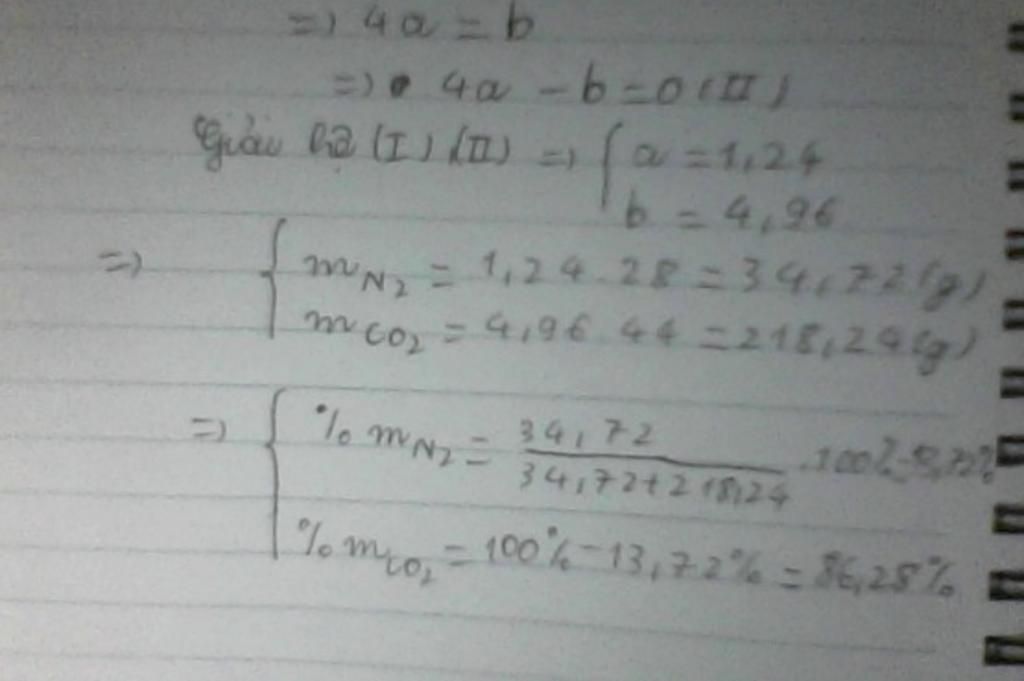 => 4a = b
=> 4a - b = 0 (II)
Giải hệ (I) (II) => { a = 1,24
b = 4,96
=> { mN2 = 1,24.28 = 34,72(g)
mCO2 = 4,96.44 = 218,24(g)
=> { %mN2 = 34,72 / 34,72+218,24 .100% = 13,72%
%mCO2 = 100% - 13,72% = 86,28%